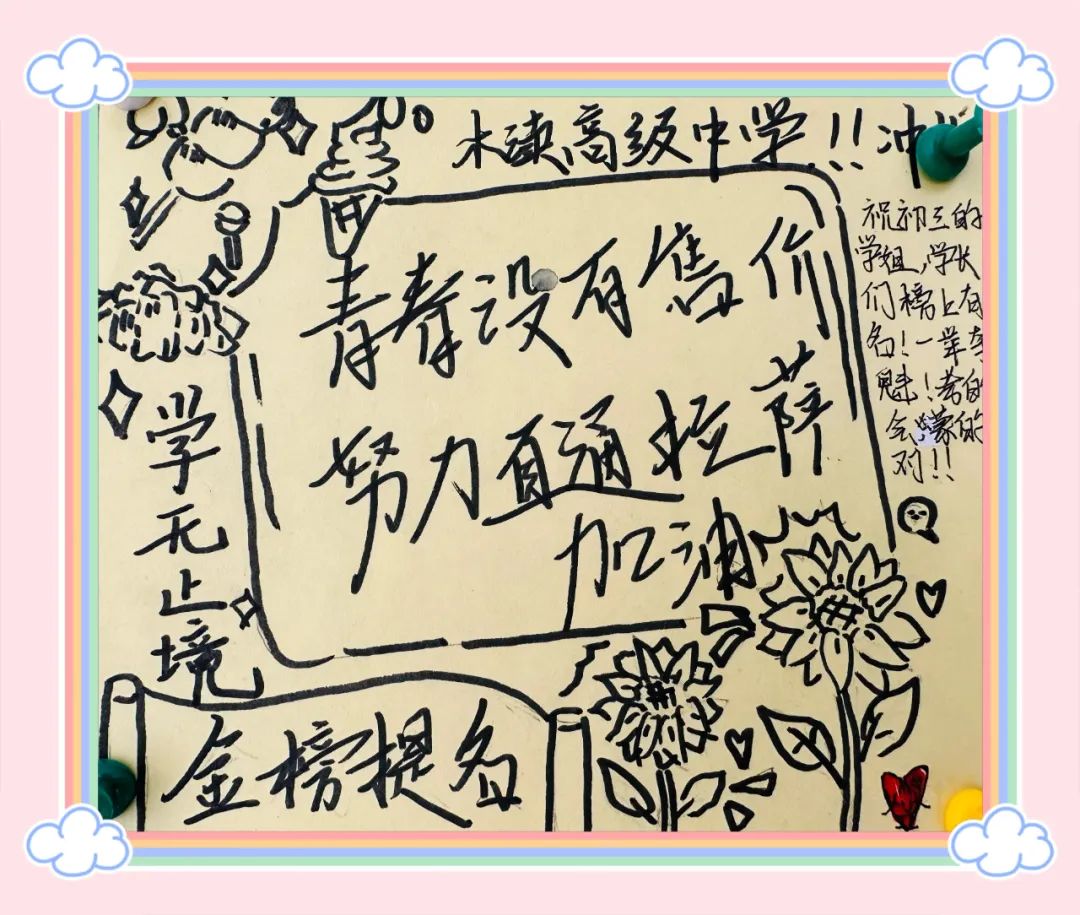 木渎高级中学!!冲
祝初三的
学姐,学长
们榜上有
名!一举夺
魁!考的
会,蒙的
对!!
青春没有售价
努力直通拉萨
加油
学无止境
金榜提名